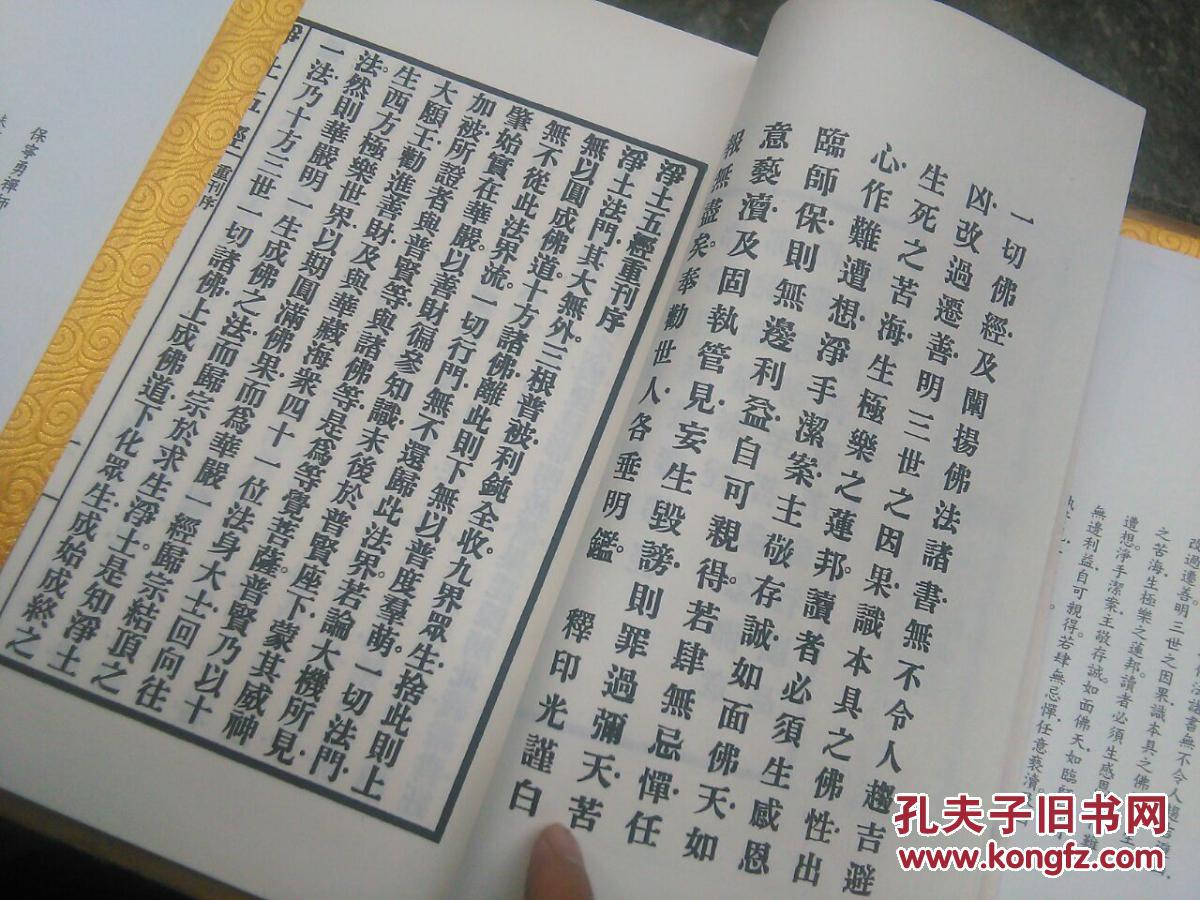 一切佛經及闡揚佛法諸書無不令人趨吉避
凶改過遷善明三世之因果識本具之佛性出
生死之苦海生極樂之蓮邦讀者必須生感恩
心作難遭想淨手潔案主敬存誠如面佛天如
臨師保則無邊利益自可親得若肆無忌憚任
意褻瀆及固執管見妄生毀謗則罪過彌天苦
報無盡矣奉勸世人各垂明鑑 釋印光謹白
淨土五經重刊序
淨土法門其大無外。三根普被利鈍全收。九界眾生捨此則上
無以圓成佛道。十方諸佛離此則下無以普度羣萌。一切法門
無不從此法界流。一切行門無不還歸此法界。若論大機所見
肇始實在華嚴。以善財徧參知識末後於普賢座下蒙其威神
加被所證者與普賢等與諸佛等是為等覺菩薩。普賢乃以十
大願王勸進善財及與華藏海衆四十一位法身大士回向往
生西方極樂世界以期圓滿佛果而為華嚴一經歸宗結頂之
法然則華嚴明一生成佛之法而歸宗於求生淨土是知淨土
一法乃十方三世一切諸佛上成佛道下化眾生成始成終之
淨土五經 重刊序 一
保寧勇禪師
改過遷善明三世之因果識本具之佛
之苦海生極樂之蓮邦讀者必須生感恩
遭想淨手潔案主敬存誠如面佛天如臨師
無邊利益自可親得若肆無忌憚任意褻瀆
孔夫子旧书网
www.kongfz.com